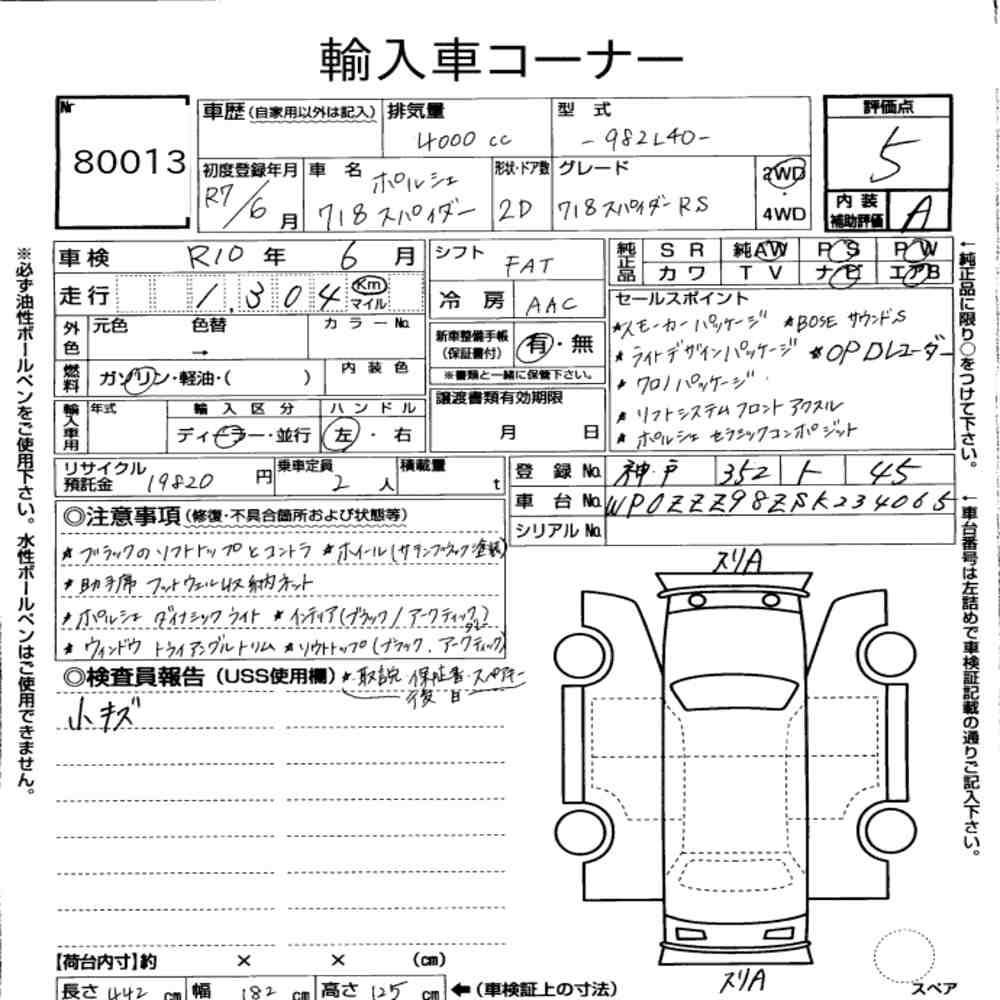 輸入車コーナー
Nr
80013
車歴(自家用以外は記入)
排気量
4000 cc
型 式
-982L40-
評価点
5
内装補助評価
A
初度登録年月
R7/6月
車 名
ポルシェ
718スパイダー
形状・ドア数
2D
グレード
718スパイダーRS
2WD
・
4WD
※必ず油性ボールペンをご使用下さい。水性ボールペンはご使用できません。
車検 R10年 6月
走行 1,304 Km マイル
外色
元色 色替
→
カラーNo.
燃料
ガソリン・軽油・( )
内装色
輸入車用
年式
輸入区分
ディーラー・並行
ハンドル
左・右
シフト
FAT
冷房 AAC
新車整備手帳
(保証書付)
有・無
※書類と一緒に保管下さい。
譲渡書類有効期限
月 日
純正品
SR 純AW PS PW
カワ TV ナビ エアB
セールスポイント
*スモーカーパッケージ *BOSEサウンドS
*ライトデザインパッケージ *OP DLユーダー
*クロノパッケージ
*リフトシステムフロントアクスル
*ポルシェ セラミックコンポジット
←純正品に限り○をつけて下さい。
リサイクル預託金 19820円
乗車定員
2人
積載量
t
登録No. 神戸 352 ト 45
車台No. WP0ZZZ98ZSK234065
シリアルNo.
←車台番号は左詰めで車検証記載の通りご記入下さい。
◎注意事項(修復・不具合箇所および状態等)
*ブラックのソフトトップとコントラ *ホイール(サテンブラック塗装)
*助手席フットウェル収納ネット
*ポルシェ ダイナミックライト *インテリア(ブラック/アークティックグレー)
*ウィンドウ トライアングルトリム *ソフトトップ(ブラック、アークティック)
◎検査員報告(USS使用欄)
*取説 保証書・スペアキー
後日
小キズ
スリA
スリA
【荷台内寸】約 × × (cm)
長さ 442 cm 幅 182 cm 高さ 125 cm
←(車検証上の寸法)
スペア